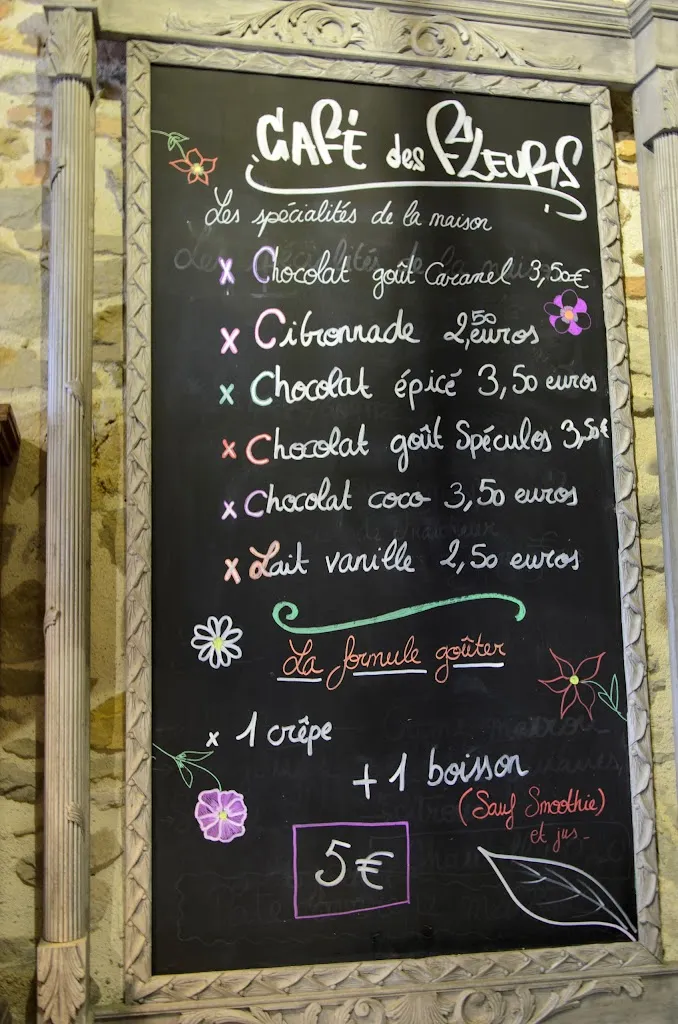 CAFÉ des FLEURS
Les spécialités de la maison
x Chocolat goût Caramel 3,50€
x Citronnade 2,50 euros
x Chocolat épicé 3,50 euros
x Chocolat goût Spéculos 3,50€
x Chocolat coco 3,50 euros
x Lait vanille 2,50 euros
La formule goûter
x 1 crêpe
+ 1 boisson
(Sauf Smoothie)
et jus -
5€